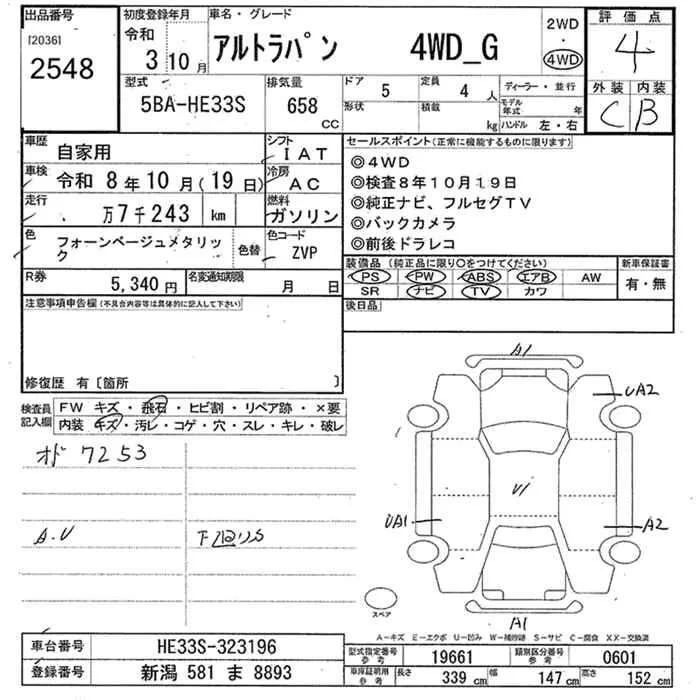 出品番号
[2036]
2548
初度登録年月
令和
3 10月
車名・グレード
アルトラパン 4WD_G
2WD
・
4WD
評価点
4
外装 内装
C B
型式
5BA-HE33S
排気量
658
CC
ドア 5
形状
定員 4 人
積載 kg
ディーラー・並行
モデル年式 年
ハンドル 左・右
車歴
自家用
シフト
IAT
車検
令和 8年10月(19日)
冷房
AC
走行
万7千243 km
燃料
ガソリン
色
フォーンベージュメタリック
色替
色コード
ZVP
R券
5,340円
名変通知期限
月 日
セールスポイント(正常に機能するものに限ります)
◎4WD
◎検査8年10月19日
◎純正ナビ、フルセグTV
◎バックカメラ
◎前後ドラレコ
装備品(純正品に限り○をつけてください)
PS PW ABS エアB AW
SR ナビ TV カワ
新車保証書
有・無
後日品
注意事項申告欄(不具合内容等は具体的に記入して下さい)
修復歴 有〔箇所 〕
検査員記入欄
FW キズ・飛石・ヒビ割・リペア跡・×要
内装 キズ・汚レ・コゲ・穴・スレ・キレ・破レ
オド 7253
A.U
下回りS
A1
UA2
U1
UA1
A2
A1
スペア
A-キズ E-エクボ U-凹み W-補修跡 S-サビ C-腐食 XX-交換済
車台番号
HE33S-323196
登録番号
新潟 581 ま 8893
型式指定番号
参考
19661
類別区分番号
参考
0601
車庫証明用
参考
長さ 339 cm
幅 147 cm
高さ 152 cm